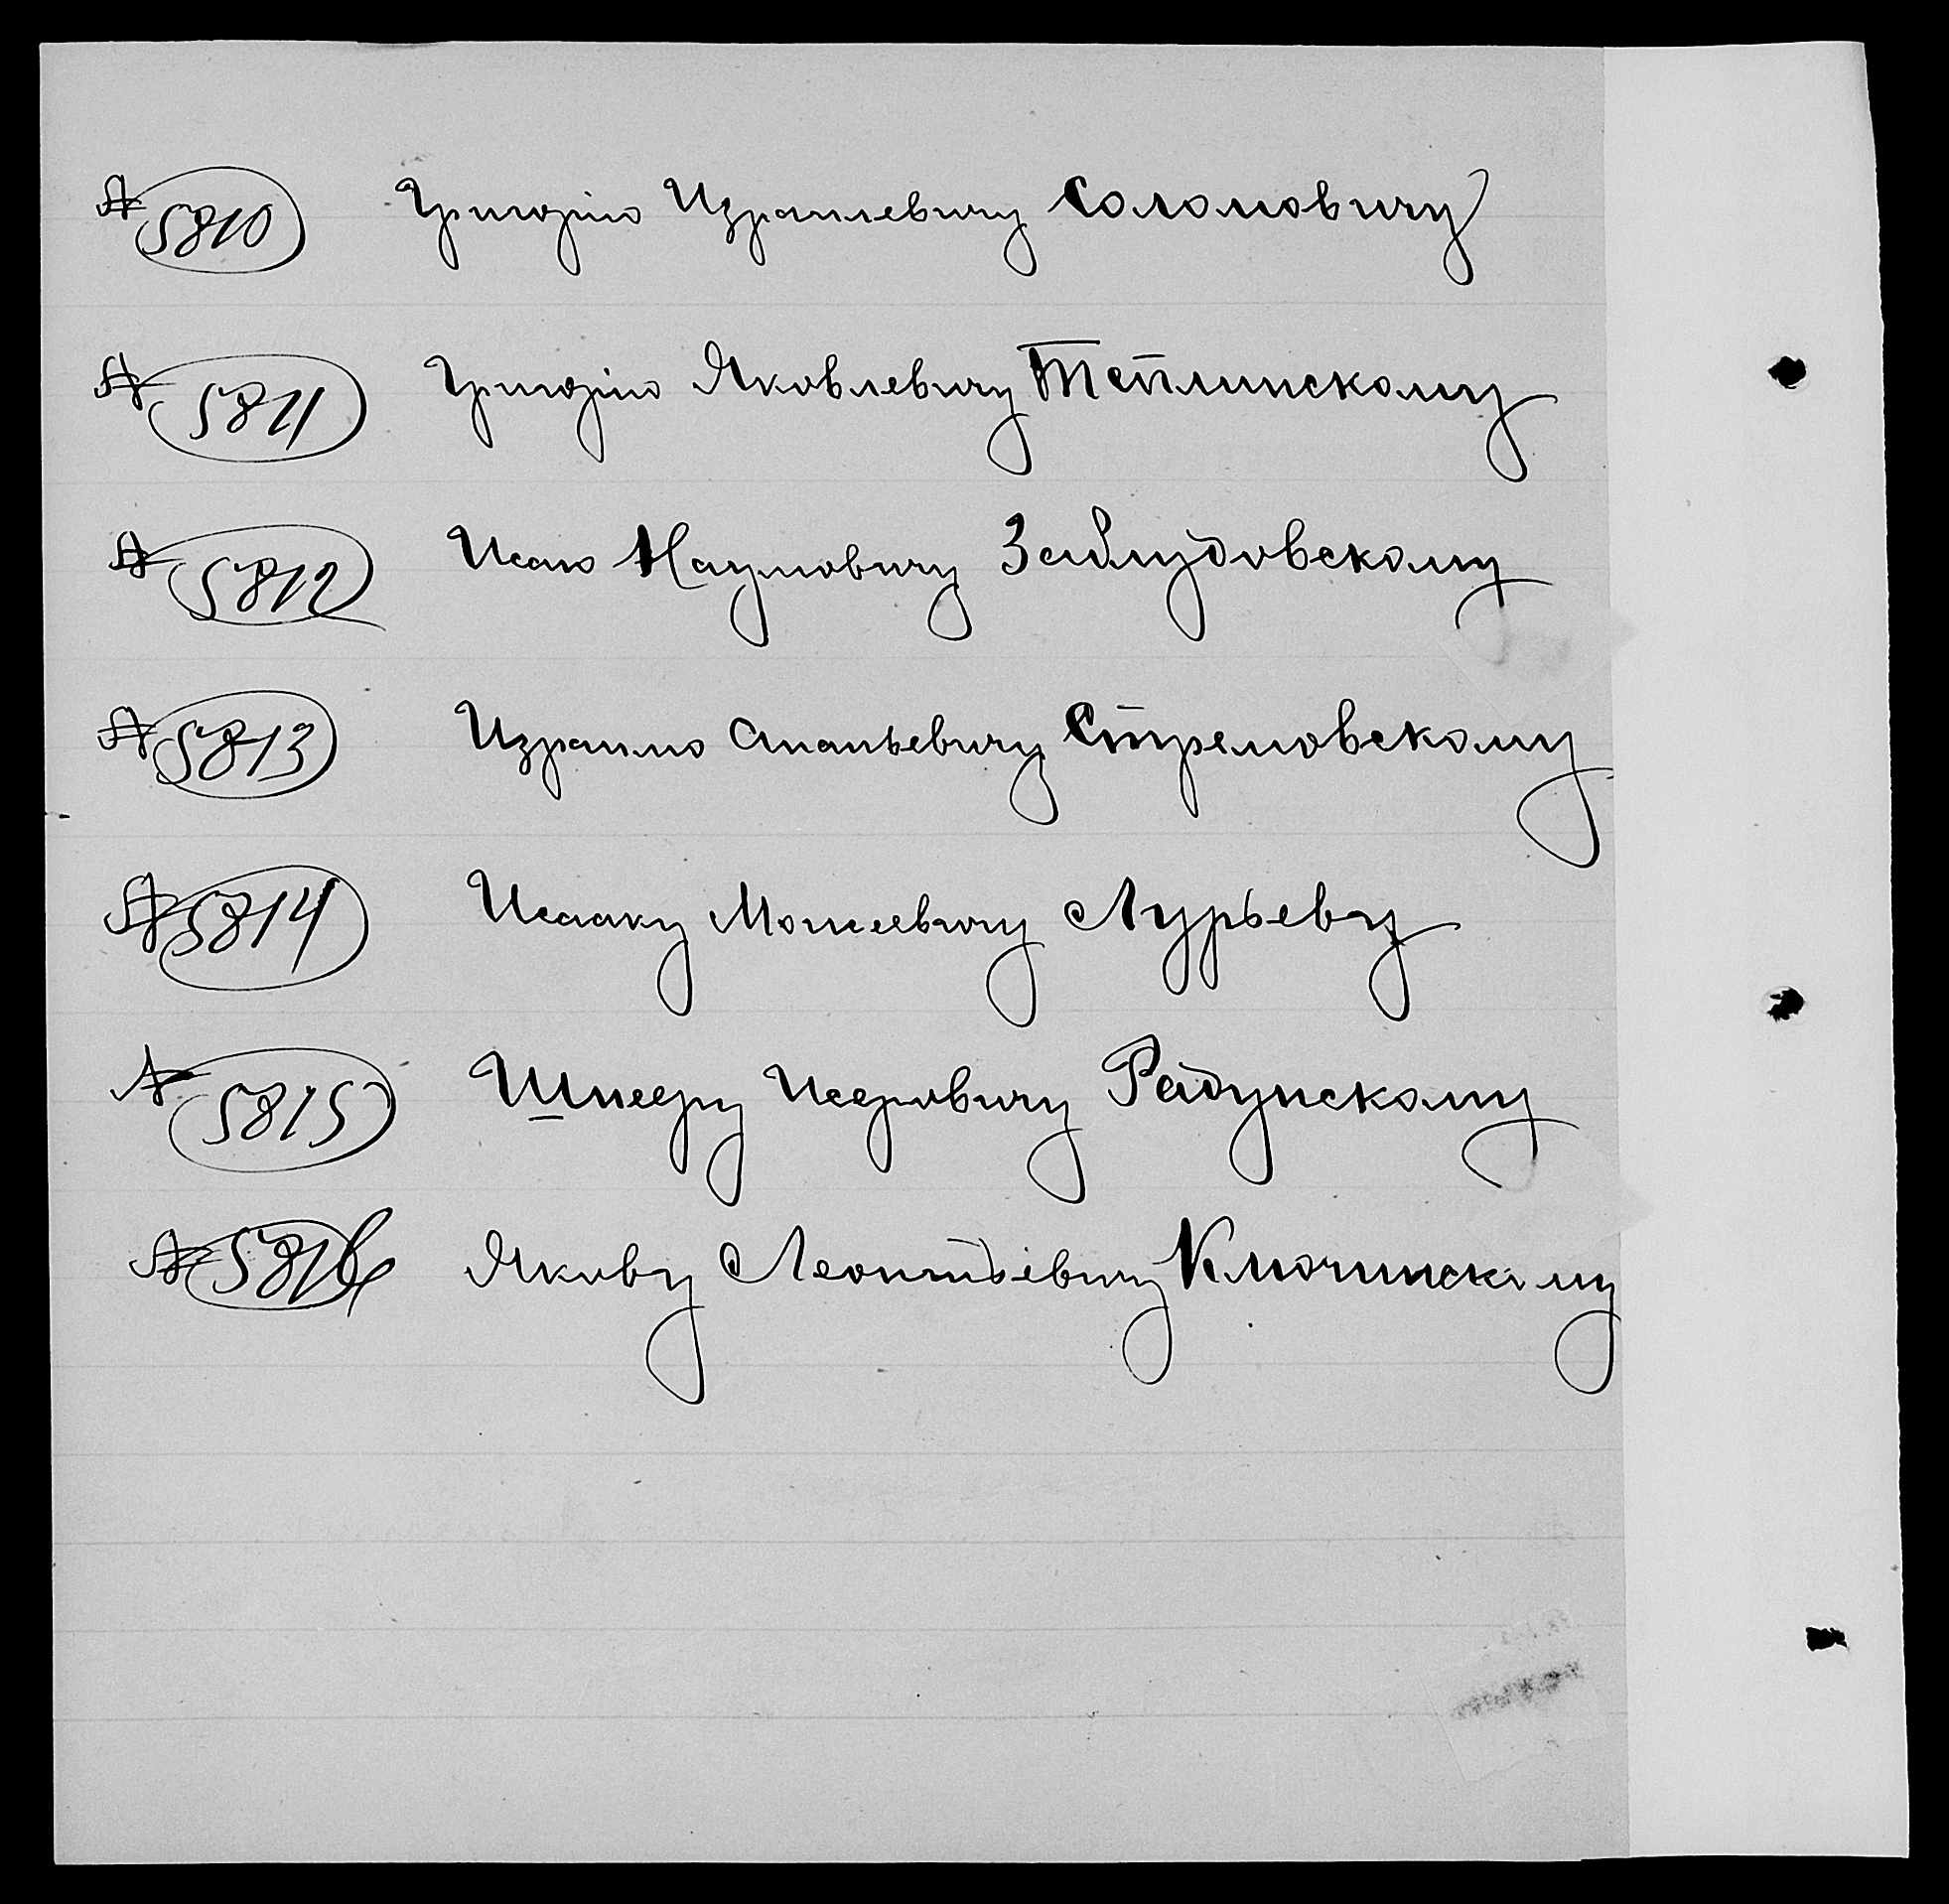 № 5810 Григорію Израилевичу Соломовичу
№ 5811 Григорію Яковлевичу Теплинскому
№ 5812 Исаю Наумовичу Заблудовскому
№ 5813 Израилю Ананьевичу Стремовскому
№ 5814 Исааку Моисеевичу Лурьеву
№ 5815 Шнееру Исеровичу Радунскому
№ 5816 Якову Леонтьевичу Ключинскому